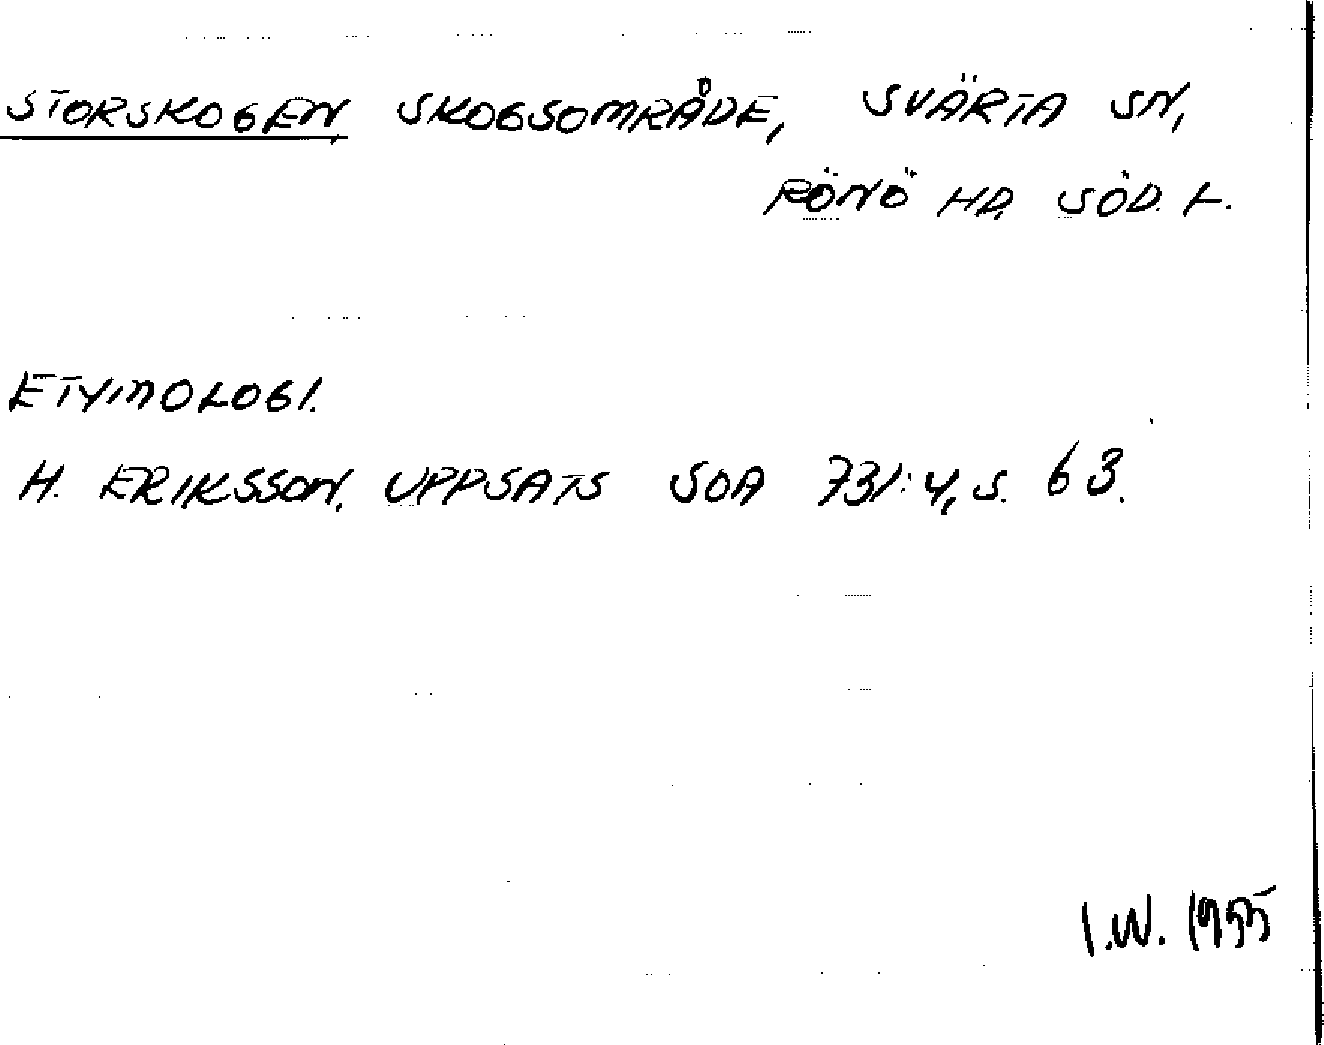 STORSKOGEN, SKOGSOMRÅDE, SVÄRTA SN,
RÖNÖ HD, SÖD. L.
ETYMOLOGI.
H. ERIKSSON, UPPSATS SOA 731:4, S. 63.
I.W. 1955